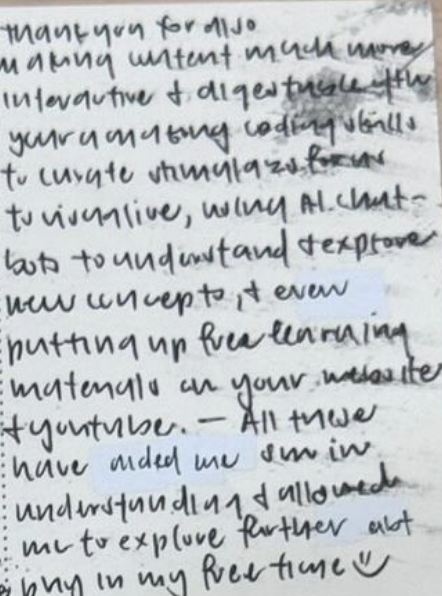 thank you for also
making content much more
interactive & digestible with
your amazing coding skills
to curate for us
to visualise, using AI chat-
bots to understand & explore
new concepts, & even
putting up free learning
materials on your website
& youtube. — All these
have aided me in
understanding & allowed
me to explore further abt
in my free time